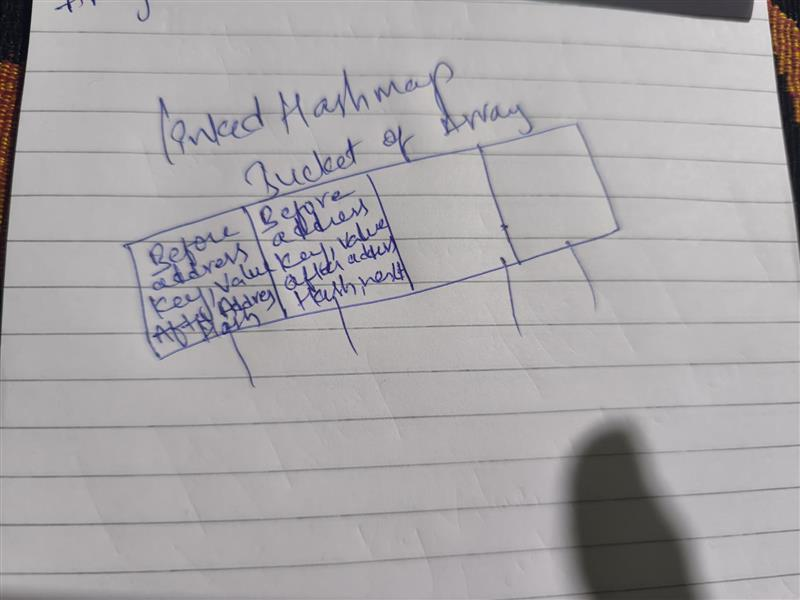 Linked Hashmap
Bucket of Array
Before
address
Key, Value
After Address
Hash
Before
address
Key, Value
after address
Hash, next